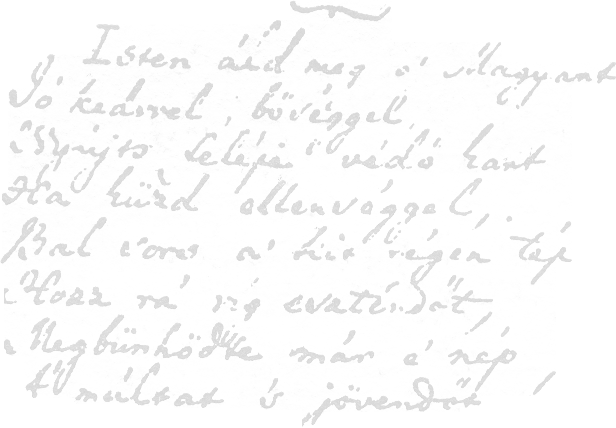 Isten áld meg a' Magyart
Jó kedvvel, bőséggel,
Nyújts feléje védő kart
Ha küzd ellenséggel,
Bal sors a' kit régen tép
Hozz rá víg esztendőt,
Megbünhödte már e' nép
A' múltat 's jövendőt